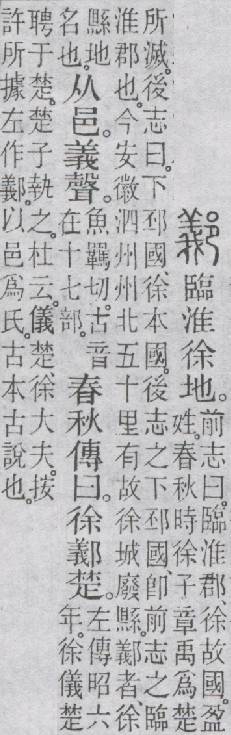 䣡臨淮徐地。前志曰。臨淮郡、徐故國。盈
姓。春秋時徐子章禹爲楚
所滅。後志曰。下邳國、徐本國。後志之下邳國卽前志之臨
淮郡也。今安徽泗州州北五十里有故徐城廢縣。䣡者徐
縣地
名也。从邑。義聲。魚羈切。古音
在十七部。春秋傳曰。徐䣡楚。左傳昭六
年。徐儀楚
聘于楚。楚子執之。杜云。儀楚徐大夫。按
許所據左作䣡。以邑爲氏。古本古說也。